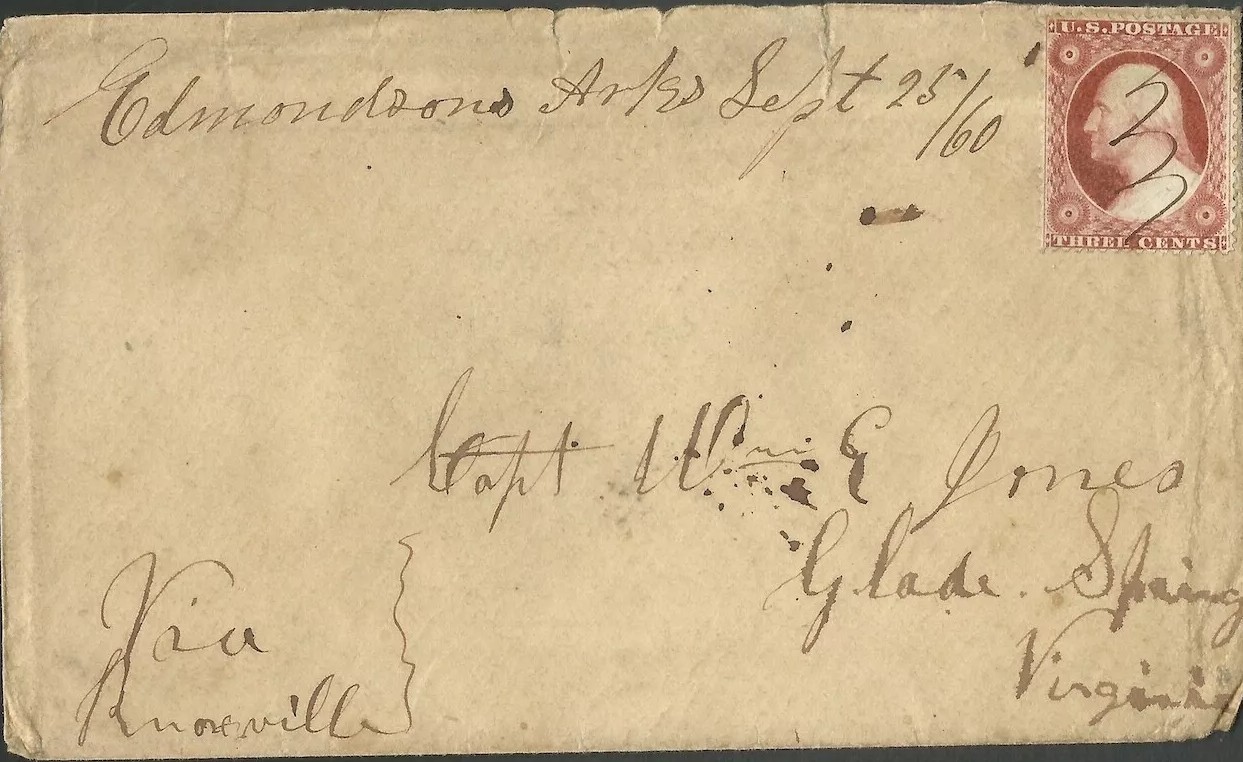 Edmondsons Arks Sept 25/60
U.S. POSTAGE
THREE CENTS
Capt Wm E Jones
Glade Spring
Virginia
Via
Knoxville